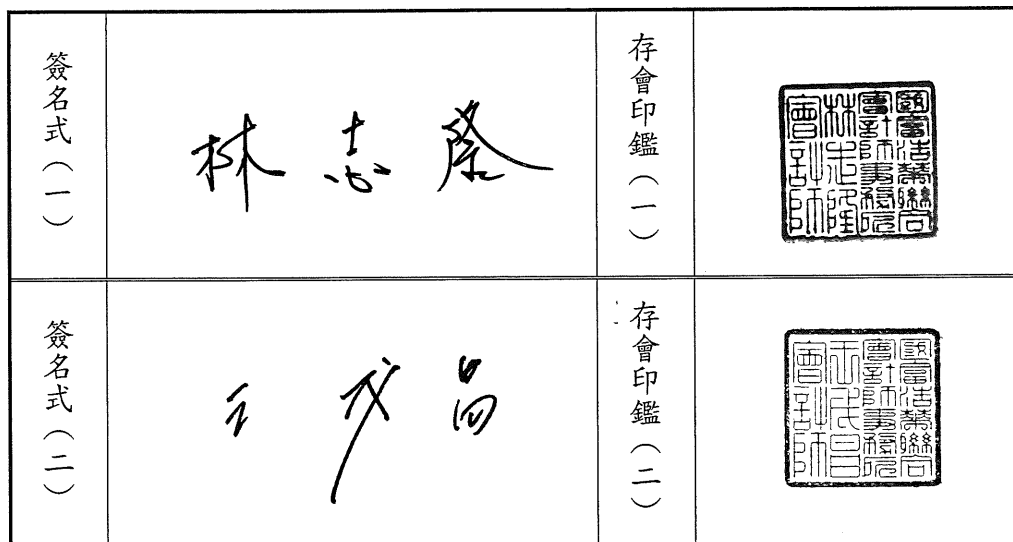 簽名式(一)
林志隆
存會印鑑(一)
國富浩華聯合
會計師事務所
林志隆
會計師
簽名式(二)
王戊昌
存會印鑑(二)
國富浩華聯合
會計師事務所
王戊昌
會計師